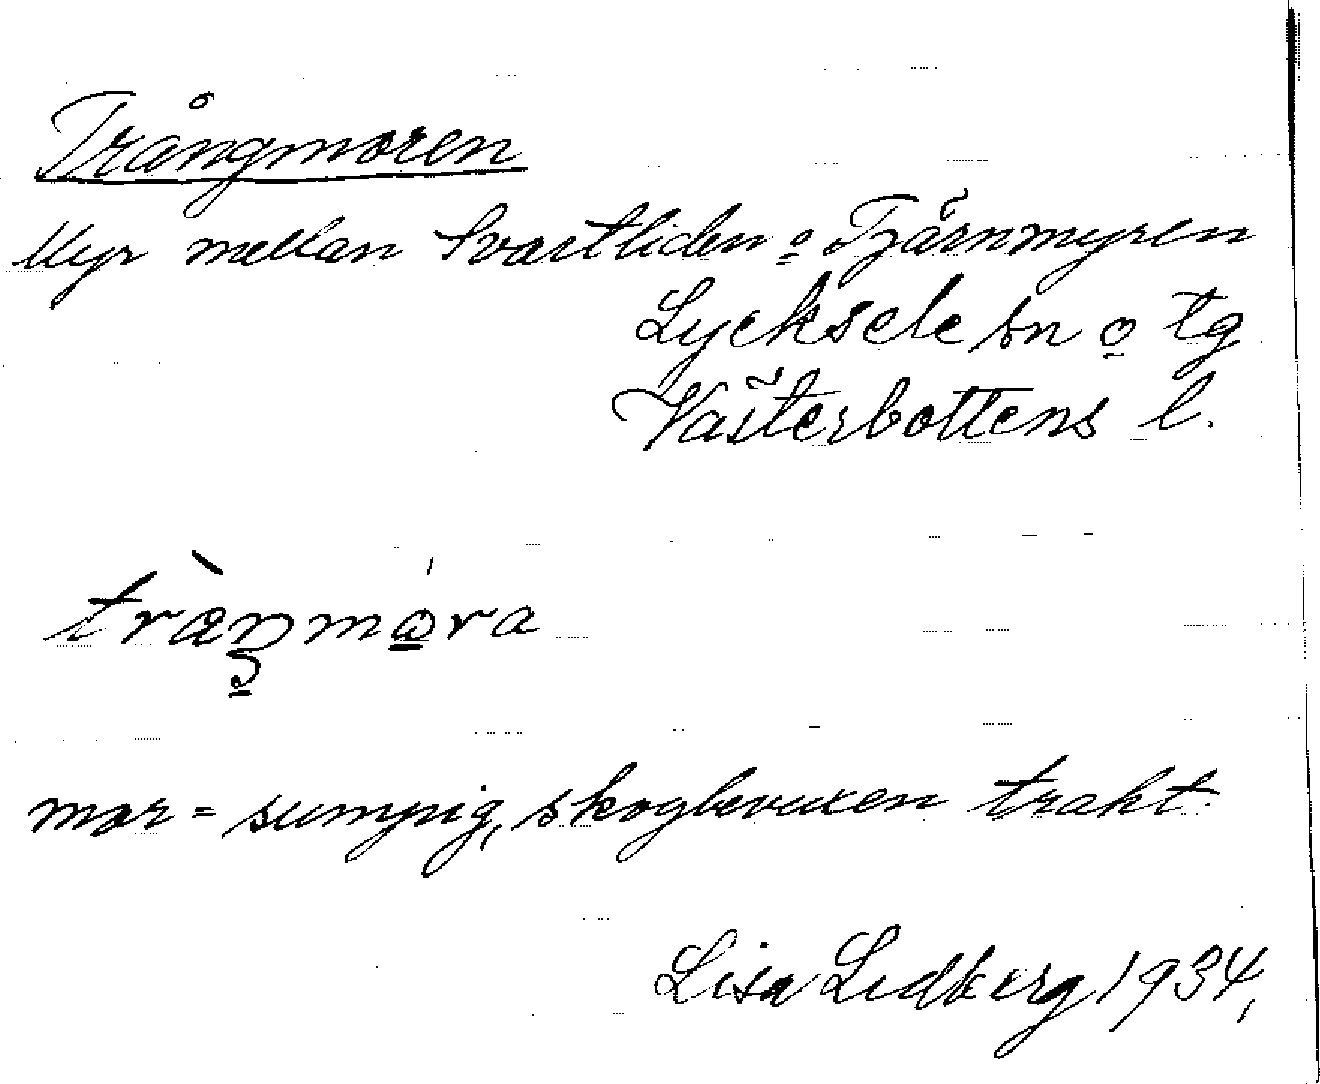 Trångmoren
Myr mellan Svartliden o Tjärnmyren
Lycksele sn o tg
Västerbottens l.
mor = sumpig, skogbevuxen trakt.
Lisa Lidberg 1934,